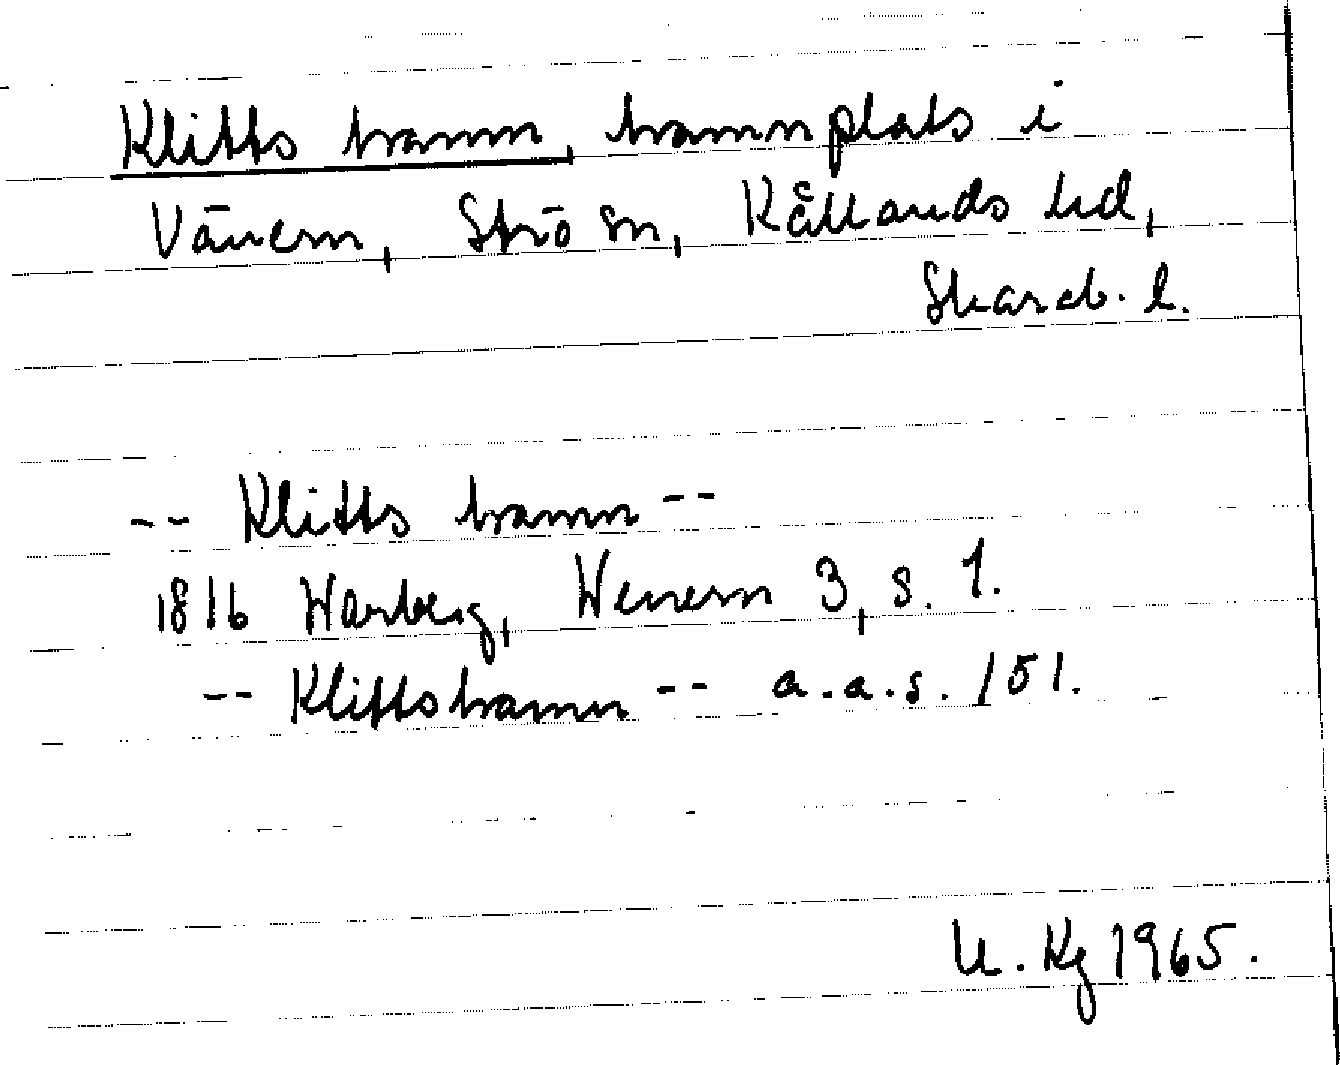 Klitts hamn, hamnplats i
Vänern, Strö sn, Kållands hd,
Skarab. l.
-- Klitts hamn --
1816 Warberg, Wenern 3, s. 1.
-- Klittshamn -- a.a.s. 151.
U. Kg 1965.